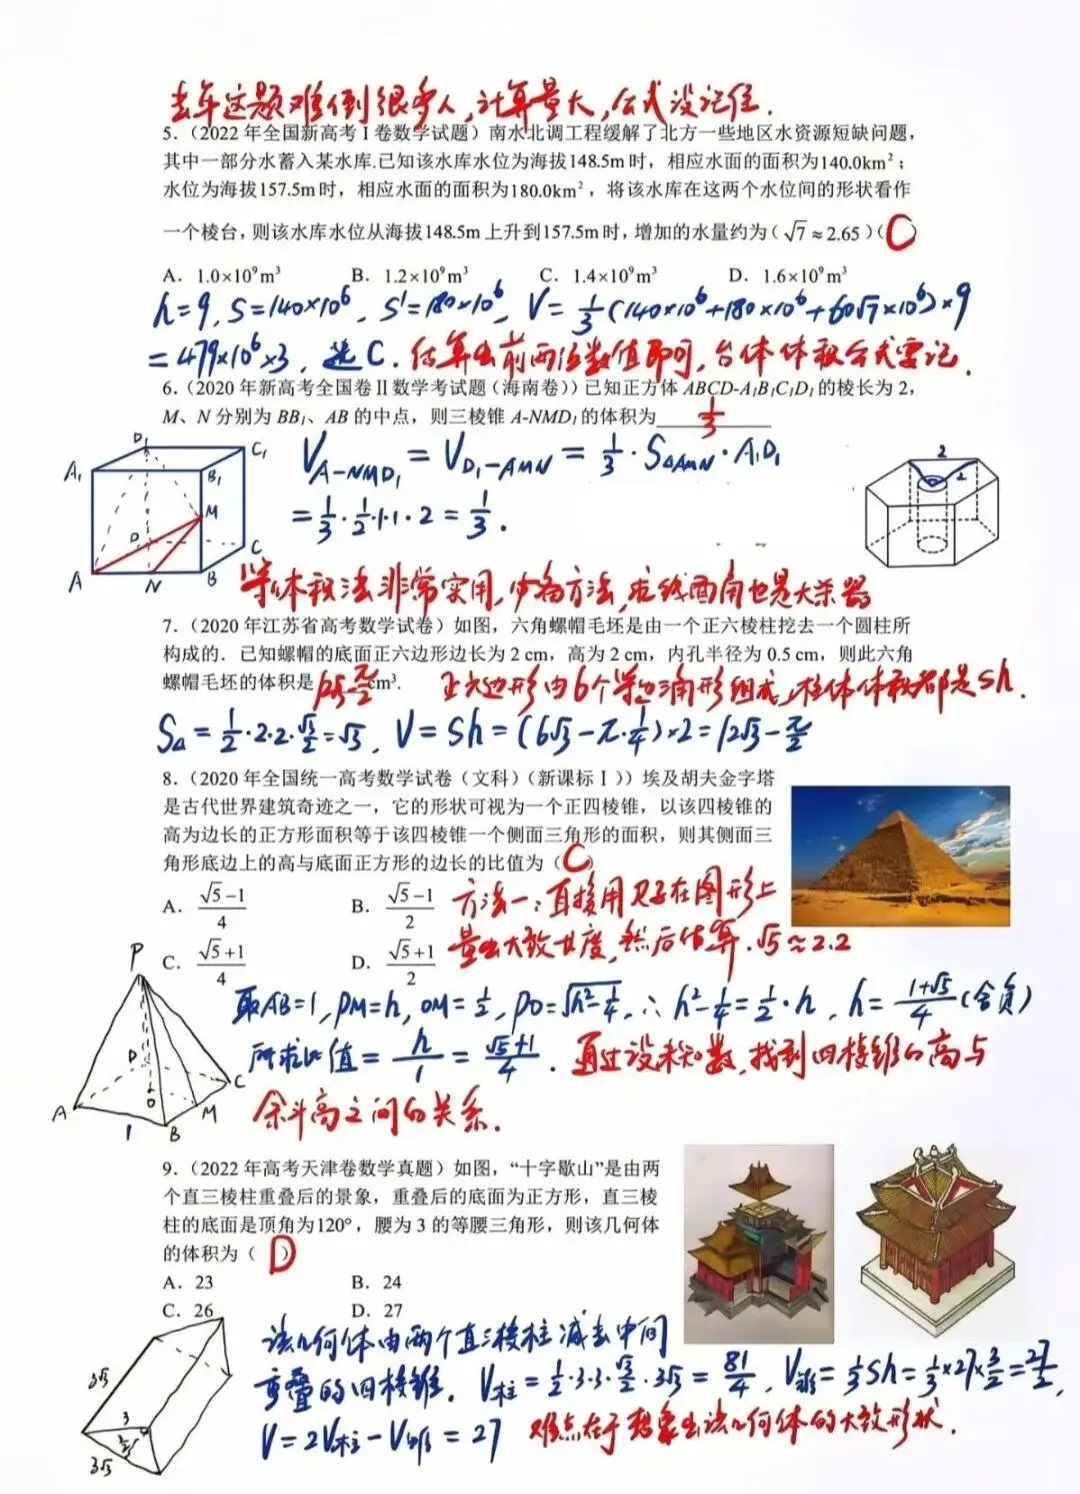 去年这题难倒很多人,计算量大,公式没记住.
5.（2022 年全国新高考 I 卷数学试题）南水北调工程缓解了北方一些地区水资源短缺问题，
其中一部分水蓄入某水库.已知该水库水位为海拔148.5m 时，相应水面的面积为140.0km²；
水位为海拔157.5m 时，相应水面的面积为180.0km²，将该水库在这两个水位间的形状看作
一个棱台，则该水库水位从海拔148.5m 上升到157.5m 时，增加的水量约为（√7≈2.65）( C )
A．1.0×10⁹m³ B．1.2×10⁹m³ C．1.4×10⁹m³ D．1.6×10⁹m³
h=9, S=140×10⁶, S'=180×10⁶, V=1/3(140×10⁶+180×10⁶+60√7×10⁶)×9
=479×10⁶×3, 选C. 估算出前两位数值即可, 台体体积公式要记.
6.（2020 年新高考全国卷 II 数学考试题（海南卷））已知正方体 ABCD-A₁B₁C₁D₁的棱长为 2，
M、N 分别为 BB₁、AB 的中点，则三棱锥 A-NMD₁的体积为 1/3
D₁ C₁ A₁ B₁ M D C A N B
V_{A-NMD₁} = V_{D₁-AMN} = 1/3·S_{△AMN}·A₁D₁
= 1/3·1/2·1·1·2 = 1/3.
2 2
等体积法非常实用,必备方法,求线面角也是大杀器
7.（2020 年江苏省高考数学试卷）如图，六角螺帽毛坯是由一个正六棱柱挖去一个圆柱所
构成的．已知螺帽的底面正六边形边长为 2 cm，高为 2 cm，内孔半径为 0.5 cm，则此六角
螺帽毛坯的体积是 12√3-π/2 cm³. 正六边形由6个等边三角形组成,柱体体积都是sh.
S△=1/2·2·2·√3/2=√3, V=Sh=(6√3-π·1/4)×2=12√3-π/2
8.（2020 年全国统一高考数学试卷（文科）（新课标 I））埃及胡夫金字塔
是古代世界建筑奇迹之一，它的形状可视为一个正四棱锥，以该四棱锥的
高为边长的正方形面积等于该四棱锥一个侧面三角形的面积，则其侧面三
角形底边上的高与底面正方形的边长的比值为（ C ）
A．(√5-1)/4 B．(√5-1)/2 方法一:直接用尺子在图形上
C．(√5+1)/4 D．(√5+1)/2 量出大致长度,然后估算.√5≈2.2
P D C A O M B 1
取AB=1, PM=h, OM=1/2, PO=√(h²-1/4), ∴h²-1/4=1/2·h, h=(1+√5)/4(舍负)
所求比值=h/1=(√5+1)/4. 通过设未知数,找到四棱锥的高与
余斜高之间的关系.
9.（2022 年高考天津卷数学真题）如图，“十字歇山”是由两
个直三棱柱重叠后的景象，重叠后的底面为正方形，直三棱
柱的底面是顶角为120°，腰为 3 的等腰三角形，则该几何体
的体积为（ D ）
A．23 B．24
C．26 D．27
3√3 3 3/2 3√3
该几何体由两个直三棱柱减去中间
重叠的四棱锥. V柱=1/2·3·3·√3/2·3√3=81/4, V锥=1/3Sh=1/3×27×3/2=27/2,
V=2V柱-V锥=27 难点在于想象出该几何体的大致形状.